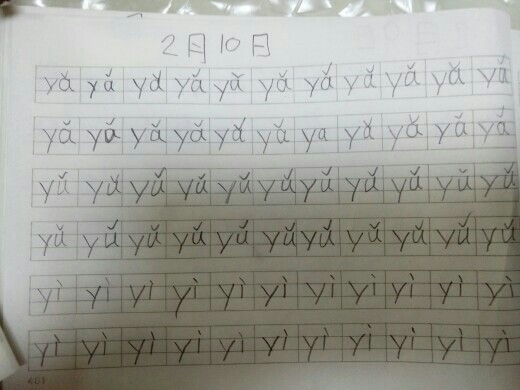 2月10日
yǎ yǎ yǎ yǎ yǎ yǎ yǎ yǎ yǎ yǎ yǎ
yǎ yǎ yǎ yǎ yǎ yǎ ya yǎ yǎ yǎ yǎ
yǔ yǔ yǔ yǔ yǔ yǔ yǔ yǔ yǔ yǔ yǔ
yǔ yǔ yǔ yǔ yǔ yǔ yǔ yǔ yǔ yǔ yǔ
yì yì yì yì yì yì yì yì yì yì yì
yì yì yì yì yì yì yì yì yì yì yì